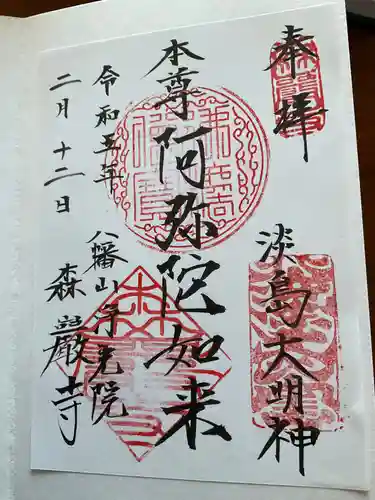 奉拝
淡島大明神
本尊阿弥陀如来
令和五年
二月十二日
八幡山浄光院
森巖寺